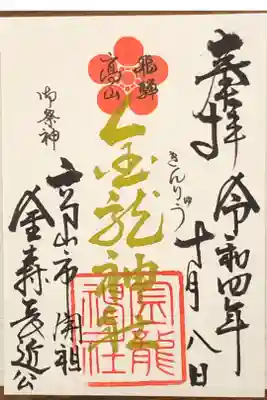 奉拝
令和四年
十月八日
飛騨
高山
金龍神社
きんりゅう
御祭神
高山市開祖
金森長近公
金龍
神社